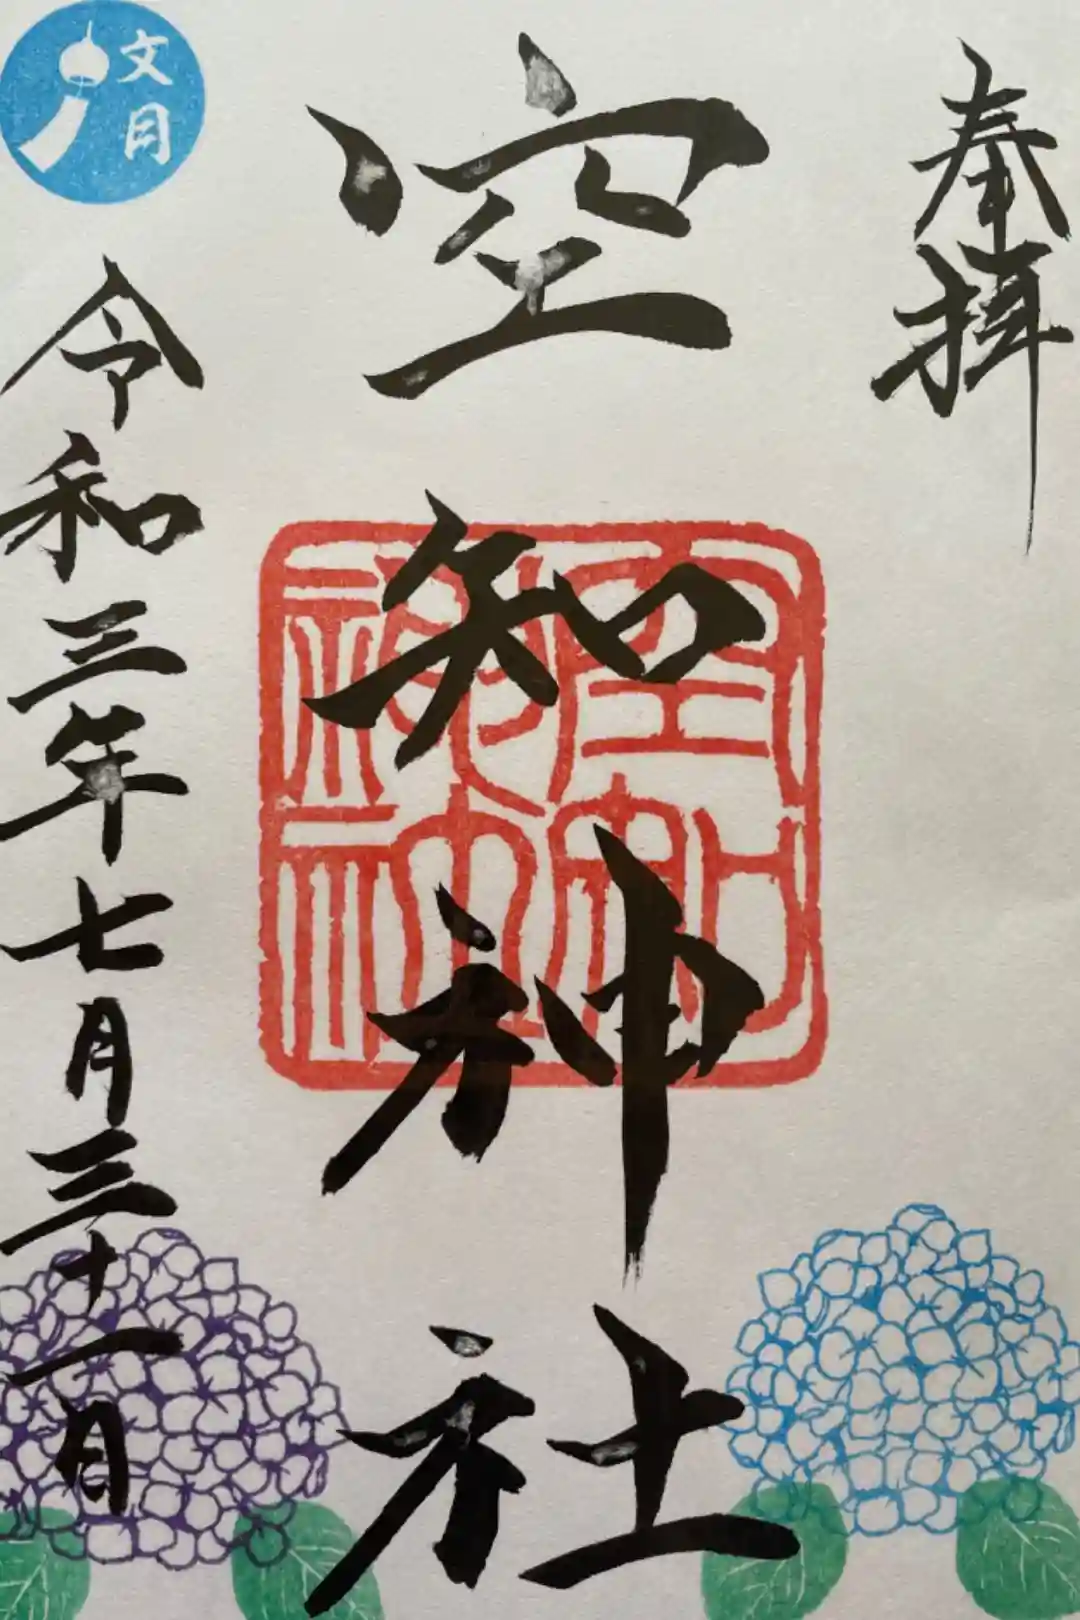 奉拝
空知神社
空知神社
文月
令和三年七月三十一日